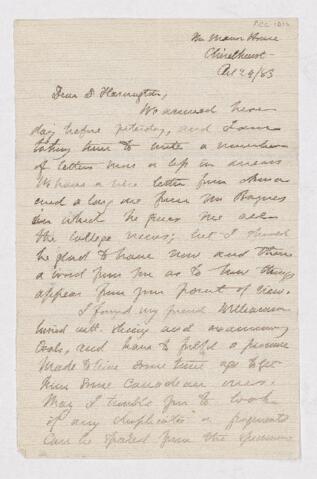 The Manor House
Chiselhurst
Oct 24/83
Dear Dr Harrington,
We arrived here
day before yesterday, and I am
taking time to write a number
of letters more or less in arrears
We have a nice letter from Anna
and a long one from Mr Baynes
in which he gives me all
the college news; but I should
be glad to have now and then
a word from you as to how things
appear from your point of view.
I found my friend Williamson
busied with slicing and examining
Coals, and have to fulfil a promise
made to him some time ago to get
him some Canadian ones.
May I trouble you to look
if any duplicates or fragments
can be spared from the specimens